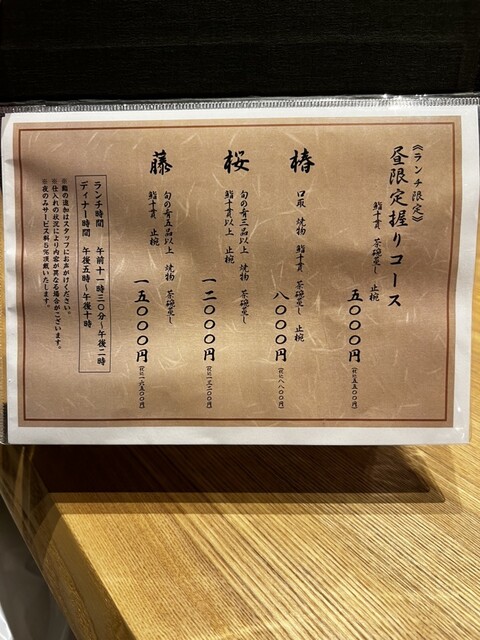 《ランチ限定》
昼限定握りコース
鮨十貫 茶碗蒸し 止椀
五〇〇〇円(税込五五〇〇円)
椿
口取 焼物 鮨十貫 茶碗蒸し 止椀
八〇〇〇円(税込八八〇〇円)
桜
旬の肴三品以上 焼物 茶碗蒸し
鮨十貫以上 止椀
一二〇〇〇円(税込一三二〇〇円)
藤
旬の肴五品以上 焼物 茶碗蒸し
鮨十貫 止椀
一五〇〇〇円(税込一六五〇〇円)
ランチ時間 午前十一時三〇分～午後二時
ディナー時間 午後五時～午後十時
※鮨の追加はスタッフにお声がけください。
※仕入れの状況により内容が異なる場合がございます。
※夜のみサービス料５％頂戴いたします。